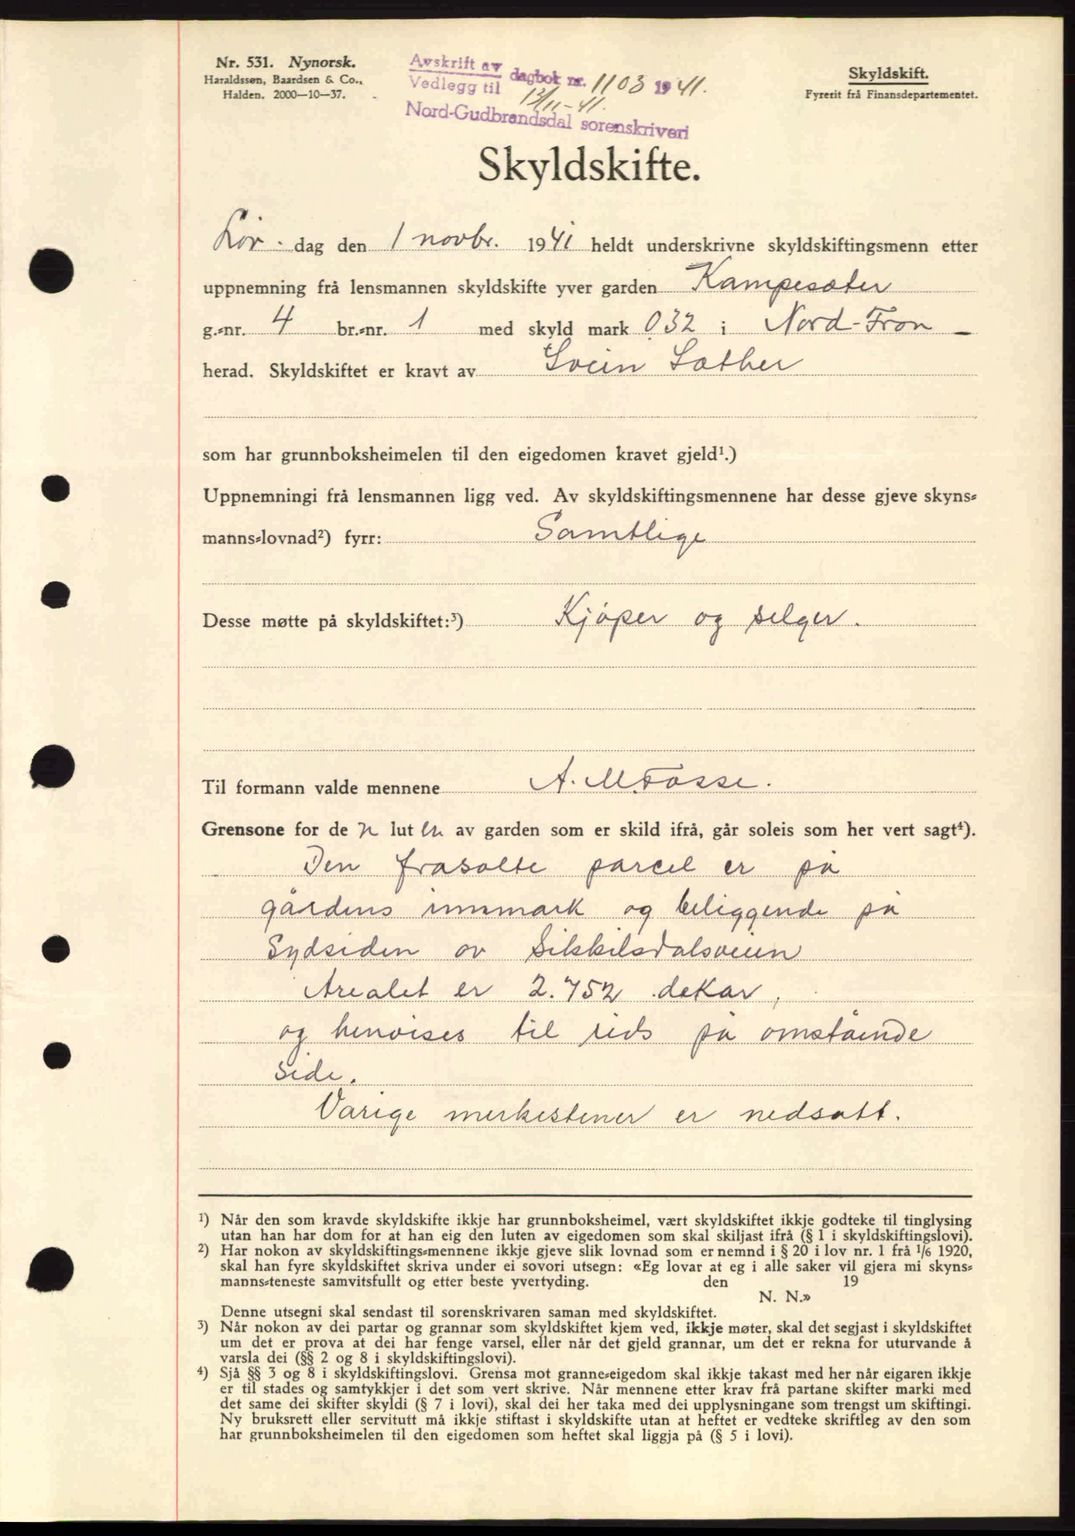 Nr. 531. Nynorsk.
Haraldssen, Baardsen & Co.,
Halden. 2000—10—37.
Avskrift av
Vedlegg til dagbok nr. 1103 1941.
12/11-41.
Nord-Gudbrandsdal sorenskriveri
Skyldskift.
Fyrerit frå Finansdepartementet.
Skyldskifte.
Lør. dag den 1 novbr. 1941 heldt underskrivne skyldskiftingsmenn etter
uppnemning frå lensmannen skyldskifte yver garden Kampesæter
g.-nr. 4 br.-nr. 1 med skyld mark 0.32 i Nord-Fron
herad. Skyldskiftet er kravt av Svein Sæther
som har grunnboksheimelen til den eigedomen kravet gjeld¹.)
Uppnemningi frå lensmannen ligg ved. Av skyldskiftingsmennene har desse gjeve skyns-
manns-lovnad²) fyrr: Samtlige
Desse møtte på skyldskiftet:³) Kjøper og selger.
Til formann valde mennene A. M. Fosse.
Grensone for de n lut en av garden som er skild ifrå, går soleis som her vert sagt⁴).
Den frasolte parcel er på
gårdens innmark og beliggende på
Sydsiden av Sikkilsdalsveien
Arealet er 2.752 dekar,
og henvises til rids på omstående
side.
Varige merkestener er nedsatt.
¹) Når den som kravde skyldskifte ikkje har grunnboksheimel, vært skyldskiftet ikkje godteke til tinglysing
utan han har dom for at han eig den luten av eigedomen som skal skiljast ifrå (§ 1 i skyldskiftingslovi).
²) Har nokon av skyldskiftings-mennene ikkje gjeve slik lovnad som er nemnd i § 20 i lov nr. 1 frå 1/6 1920,
skal han fyre skyldskiftet skriva under ei sovori utsegn: «Eg lovar at eg i alle saker vil gjera mi skyns-
manns-teneste samvitsfullt og etter beste yvertyding. den 19
N. N.»
Denne utsegni skal sendast til sorenskrivaren saman med skyldskiftet.
³) Når nokon av dei partar og grannar som skyldskiftet kjem ved, ikkje møter, skal det segjast i skyldskiftet
um det er prova at dei har fenge varsel, eller når det gjeld grannar, um det er rekna for uturvande å
varsla dei (§§ 2 og 8 i skyldskiftingslovi).
⁴) Sjå §§ 3 og 8 i skyldskiftingslovi. Grensa mot granne-eigedom skal ikkje takast med her når eigaren ikkje
er til stades og samtykkjer i det som vert skrive. Når mennene etter krav frå partane skifter marki med
det same dei skifter skyldi (§ 7 i lovi), skal dei her taka med dei upplysningane som trengst um skiftingi.
Ny bruksrett eller servitutt må ikkje stiftast i skyldskifte utan at heftet er vedteke skriftleg av den som
har grunnboksheimelen til den eigedomen som heftet skal liggja på (§ 5 i lovi).